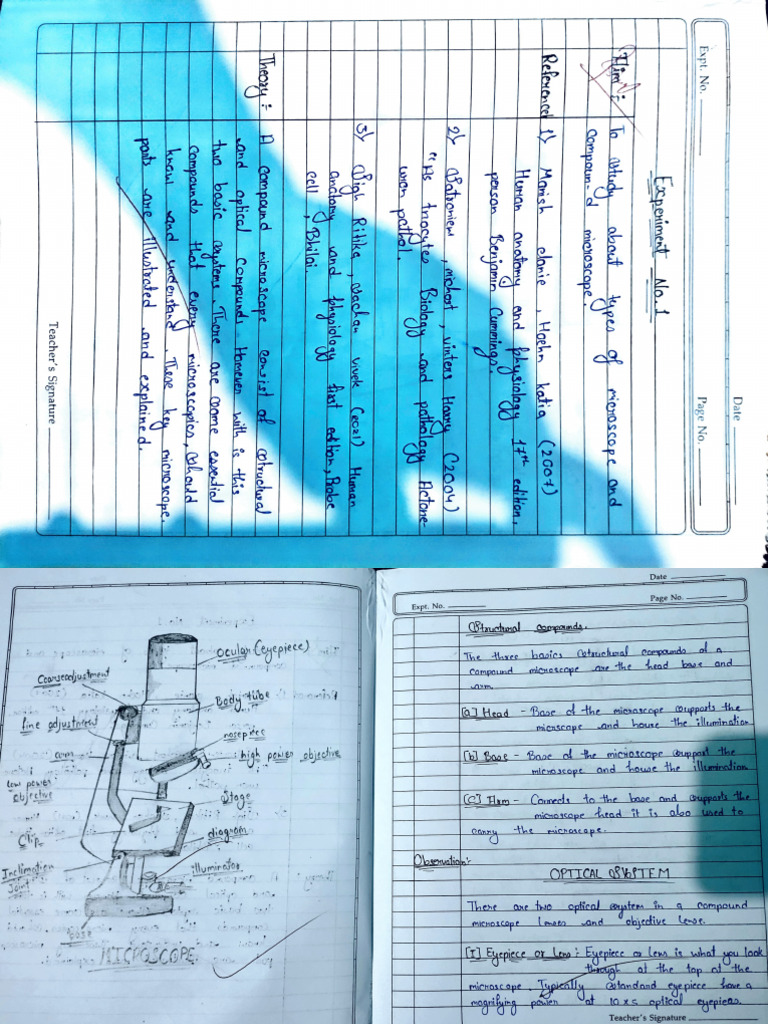 Date
Expt. No.
Page No.
Experiment No.1
Aim : To study about types of microscope and
compoun-d microscope.
Reference 1) Manish elanie, Hoehn katia (2007)
Human anatomy and physiology 17th edition,
person Benjamin Cummings.
2) michost, vinters Harry (2004)
Biology and pathology
3) Sigh Ritika, Vachan vivek (2021) Human
anatomy and physiology first edition, Probe
cell, Bhilai.
Theory : A compound microscope consist of structural
and optical compounds. However with is this
two basic systems. There are some essential
compounds that every microscopics, should
know and understand. These key microscope.
parts are illustrated and explained.
Teacher's Signature
Ocular (eyepiece)
Coarseadjustment
Body tube
fine adjustment
nosepiece
arm
high power objective
low power
objective
Stage
Clip
diagram
Inclination
Joint
illuminator
Base
MICROSCOPE
Date
Page No.
Expt. No.
Structural compounds.
The three basics structural compounds of a
compound microscope are the head base and
arm.
[a] Head - Base of the microscope supports the
microscope and house the illumination
[b] Base - Base of the microscope support the
microscope and house the illumination
[C] Arm - Connects to the base and supports the
microscope head it is also used to
carry the microscope.
Observation:
OPTICAL SYSTEM
There are two optical system in a compound
microscope lenses and objective lense.
[I] Eyepiece or Lens : Eyepiece or lens is what you look
through at the top of the
microscope. Typically standand eyepiece have a
magnifying power of 10 x s optical eyepieces.
Teacher's Signature